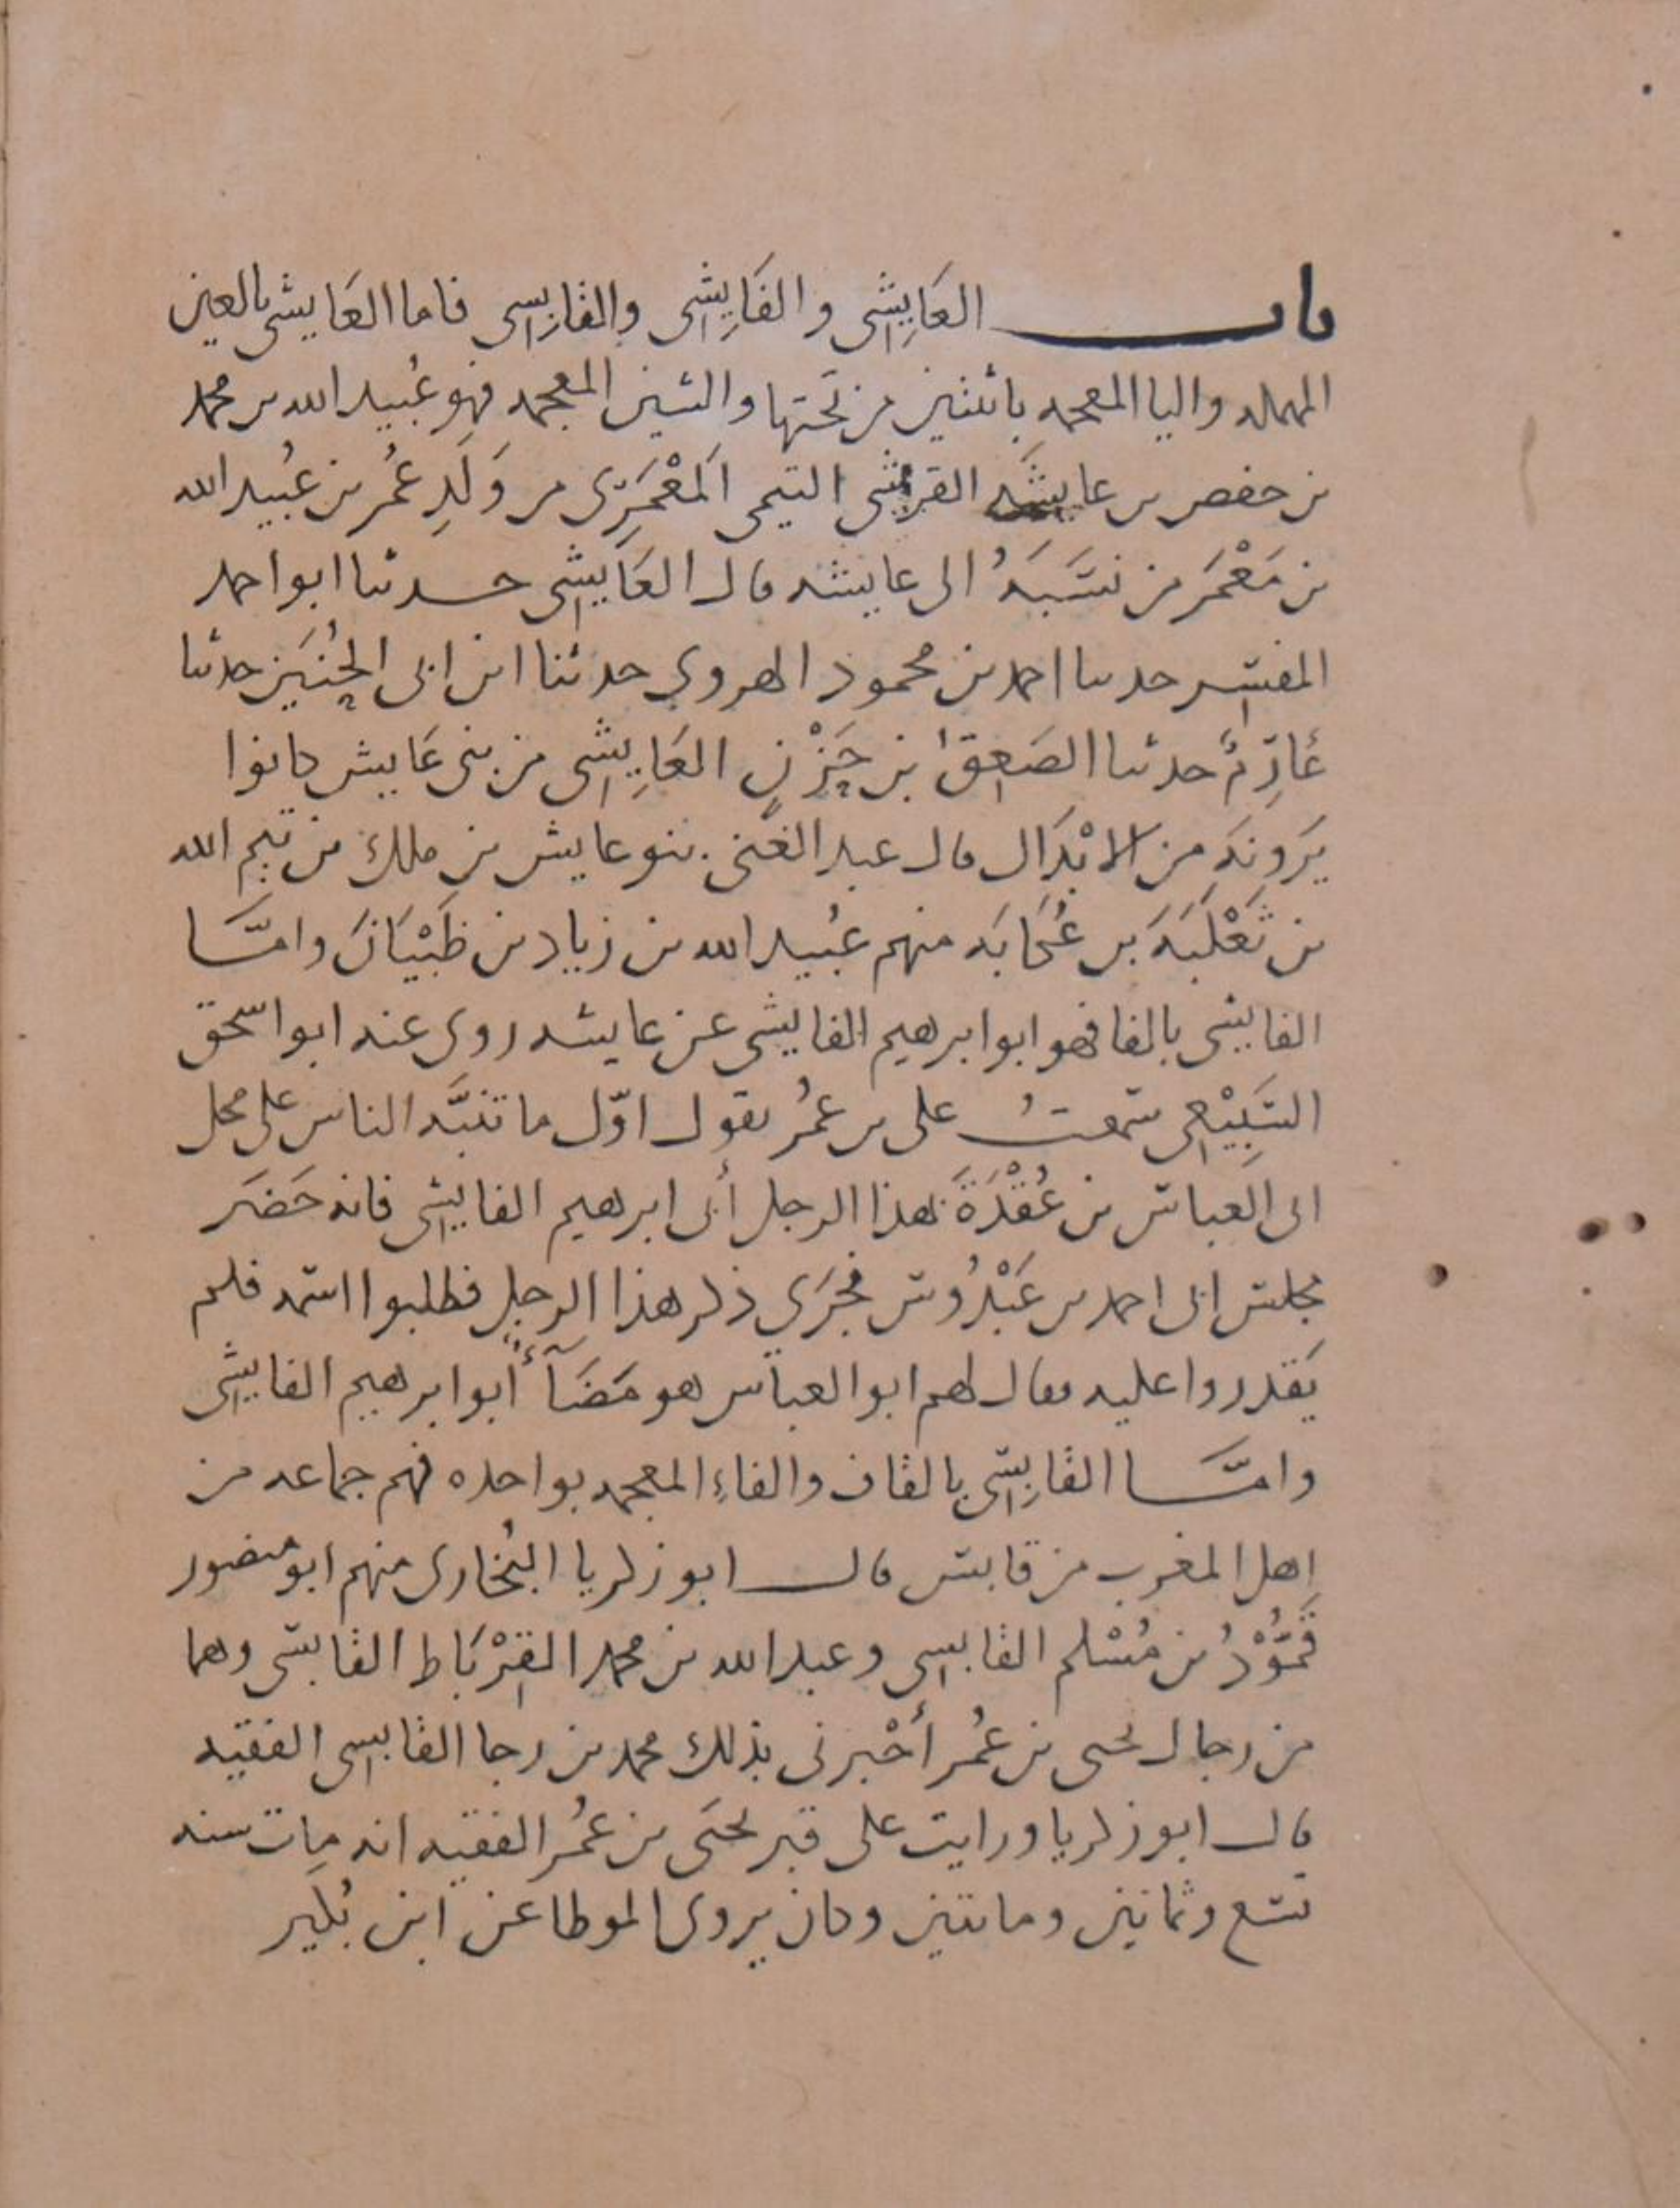 باب العَايِشى والفَايِشى والقَابِسى فاما العَايشى بالعين
المهمله واليا المعجمه باثنتين من تَحتها والشين المعجمه فهو عُبيد الله بن محمد
بن حفص بن عايشَه القرشى التيمى المَعْمَرِى من وَلَدِ عُمر بن عُبيد الله
بن مَعْمَر من نسَبَهُ الى عايشه قال العَايِشى حدثنا ابو احمد
المفسِّر حدثنا احمد بن محمود الهروي حدثنا ابن ابى الحُنَين حدثنا
عَارِمٌ حدثنا الصَعِق بن حَزْنٍ العَايِشى من بنى عَايش كانوا
يَرَونَه من الابْدَال قال عبد الغنى بنو عايش بن ملك بن تيم الله
بن ثَعْلَبَهَ بن عُكَابَه منهم عُبيد الله بن زياد بن ظَبْيَانَ وامَّا
الفايشى بالفا فهو ابو ابرهيم الفايشى عن عايشه روى عنه ابو اسحق
السَّبِيْعِى سَمعتُ على بن عُمر يقول اوّل ما تنبَّه الناس على محل
ابى العَباس بن عُقْدَةَ بهذا الرجل أبى ابرهيم الفايشى فانه حَضَر
مجلس ابى احمد بن عَبْدُوس فجَرَي ذكر هذا الرجل فطلبوا اسمه فلم
يَقدروا عليه فقال لهم ابو العباس هو مَضَآءٌ أبو ابرهيم الفايشى
وامَّا القَابِسى بالقاف والفاءِ المعجمه بواحده فهم جماعه من
اهل المغرب من قابس قال ابو زكريا البُخارى منهم ابو منصور
قَمُّوْدُ بن مُسْلم القابسى وعبد الله بن محمد القِرْبَاط القابسى وهما
من رجال يحيى بن عُمر أخْبرنى بذلك محمد بن رجا القابسى الفقيه
قال ابو زكريا ورايت على قبر يحيَى بن عُمر الفقيه انه مات سنه
تسع وثمانين ومائتين وكان يروى الموطا عن ابن بُكَير